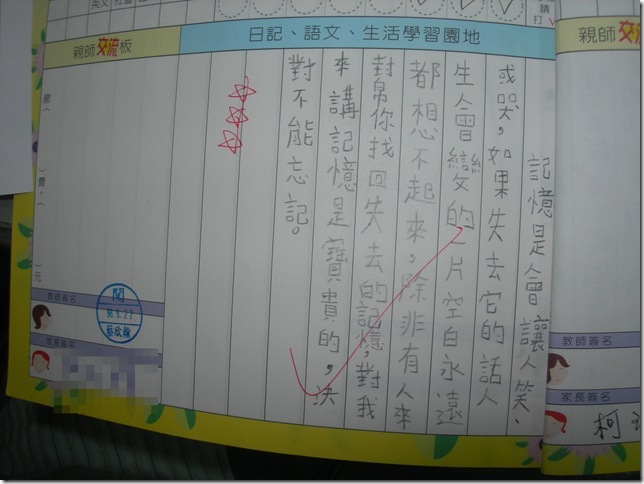 親師交流
教師簽名
家長簽名
柯
日記、語文、生活學習園地
記憶是會讓人笑、
或哭,如果失去它的話人
生會變的一片空白永遠
都想不起來,除非有人來
幫你找回失去的記憶,對我
來講記憶是寶貴的,決
對不能忘記。
親師交流板
元
教師簽名
閱
家長簽名